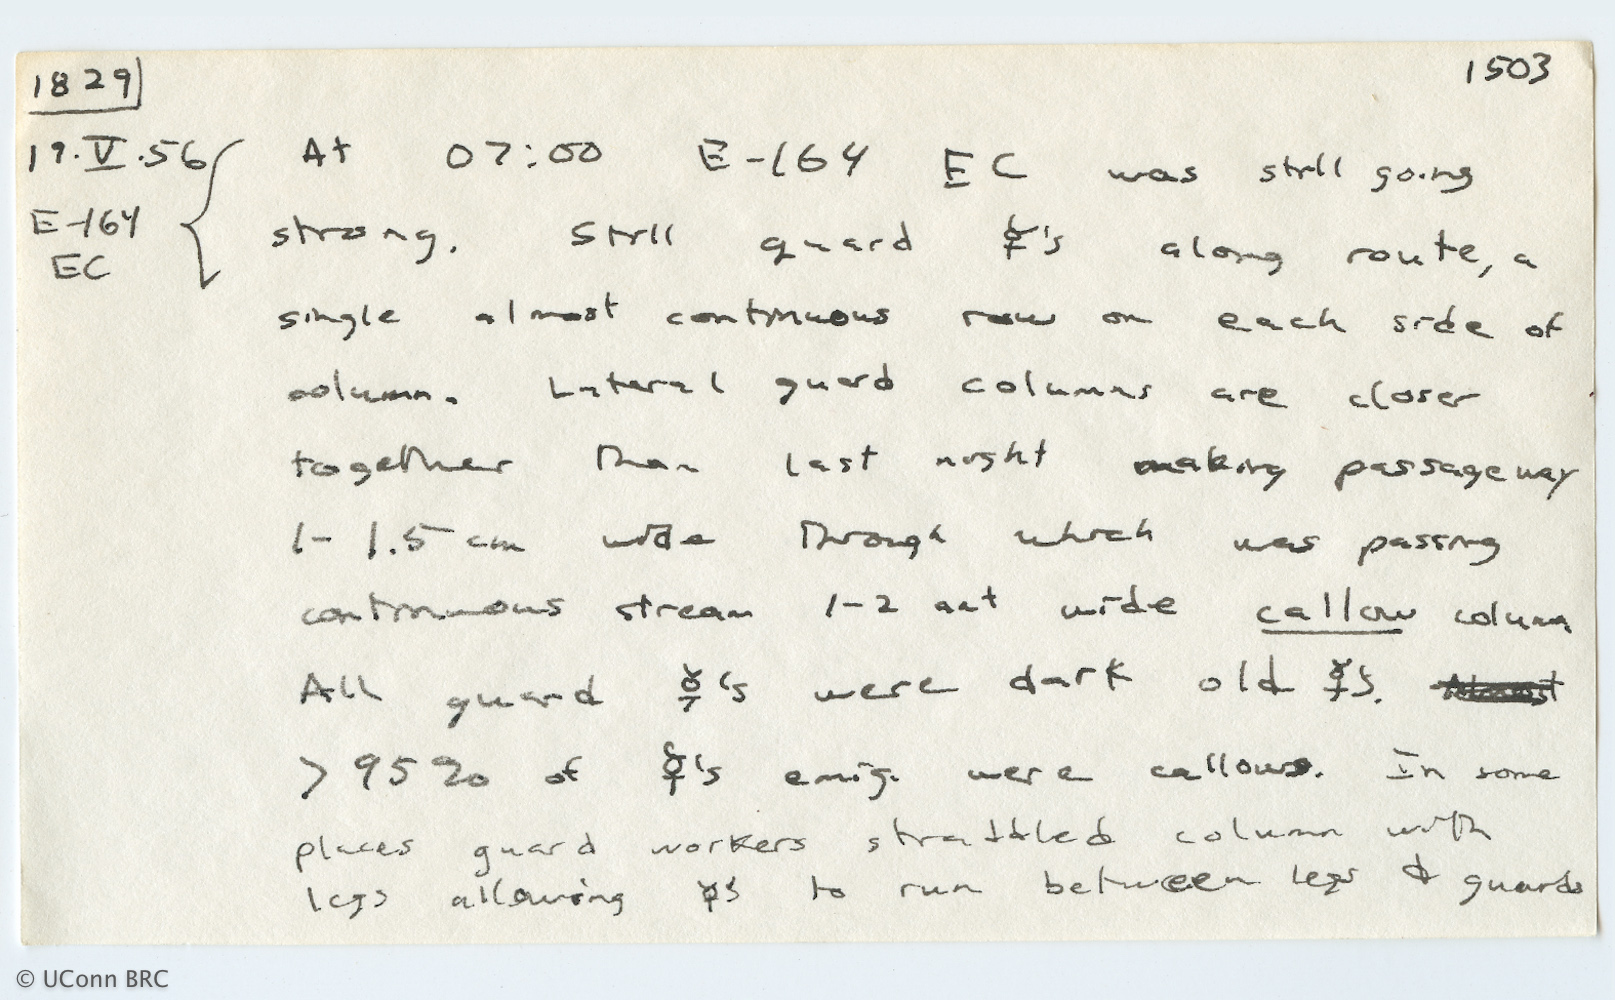 1829
1503
19.V.56
E-164
EC
At 07:00 E-164 EC was still going
strong. Still guard ☿'s along route, a
single almost continuous row on each side of
column. Lateral guard columns are closer
together than last night making passageway
1-1.5 cm wide through which was passing
continuous stream 1-2 ant wide callow column
All guard ☿'s were dark old ☿'s. Almost
>95% of ☿'s emig. were callows. In some
places guard workers straddled column with
legs allowing ☿'s to run between legs & guards
© UConn BRC